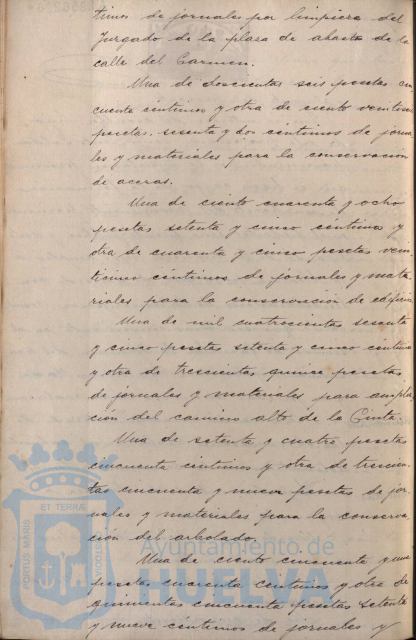 timos de jornales por limpieza del
Juzgado de la plaza de abastos de la
calle del Carmen.
Una de doscientas seis pesetas cin
cuenta céntimos y otra de ciento veintiseis
pesetas, sesenta y dos céntimos de jorna
les y materiales para la conservación
de aceras.
Una de ciento cuarenta y ocho
pesetas setenta y cinco centimos y
otra de cuarenta y cinco pesetas vein
ticinco céntimos de jornales y mate
riales para la conservación de edificios
Una de mil cuatrocientas sesenta
y cinco pesetas setenta y cinco céntimos
y otra de trescientas quince pesetas
de jornales y materiales para amplia
ción del camino alto de la Cinta.
Una de setenta y cuatro pesetas
cincuenta céntimos y otra de trescien
tas cincuenta y nueve pesetas de jor
nales y materiales para la conserva
ción del arbolado.
Una de ciento cincuenta y una
pesetas cuarenta céntimos y otra de
quinientas cincuenta pesetas setenta
y nueve céntimos de jornales y
PORTUS MARIS ET TERRAE CUSTODIA
Ayuntamiento de
HUELVA